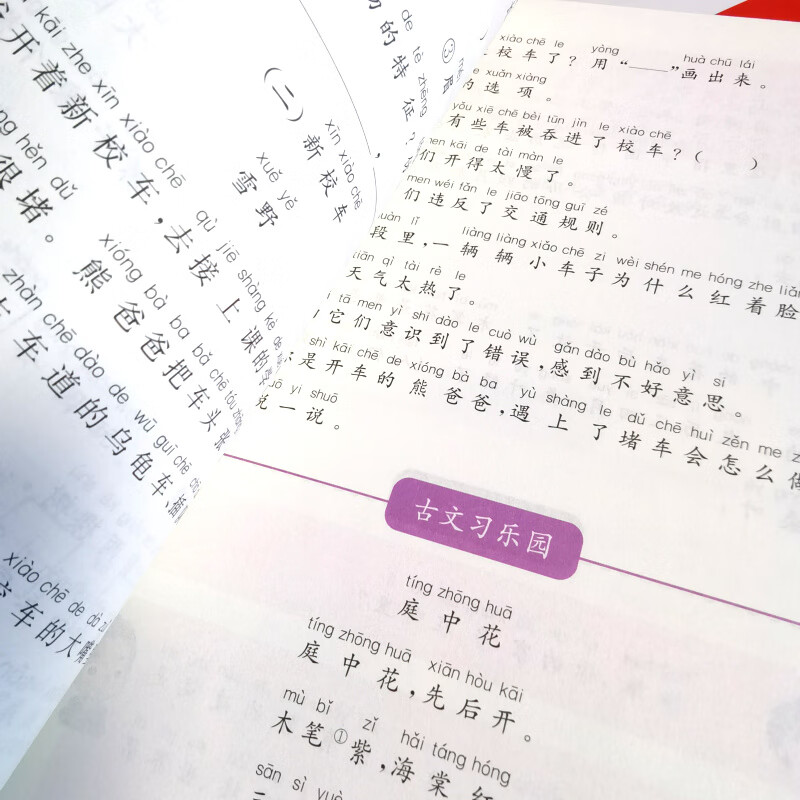 de tè zhēng
的特征?
(二)新校车
xīn xiào chē
xuě yě
雪野
kāi zhe xīn xiào chē
开着新校车,去接上课的
qù jiē shàng kè de
hěn dǔ
很堵。熊爸爸把车头
xióng bà ba bǎ chē tóu
zhàn chē dào de wū guī chē
车道的乌龟车
xiào chē de dà
校车的大嘴
xiào chē le yòng huà chū lái
校车了?用“——”画出来。
xuǎn xiàng
的选项。
yǒu xiē chē bèi tūn jìn le xiào chē
有些车被吞进了校车?( )
men kāi de tài màn le
们开得太慢了。
men wéi fǎn le jiāo tōng guī zé
们违反了交通规则。
liàng liàng xiǎo chē zi wèi shén me hóng zhe liǎn
段里,一辆辆小车子为什么红着脸
tiān qì tài rè le
天气太热了。
tā men yì shi dào le cuò wù gǎn dào bù hǎo yì si
它们意识到了错误,感到不好意思。
shì kāi chē de xióng bà ba yù shàng le dǔ chē huì zěn me z
是开车的熊爸爸,遇上了堵车会怎么做
shuō yi shuō
说一说。
古文习乐园
tíng zhōng huā
庭中花
tíng zhōng huā xiān hòu kāi
庭中花,先后开。
mù bǐ zǐ hǎi táng hóng
木笔①紫,海棠红
sān sì yuè